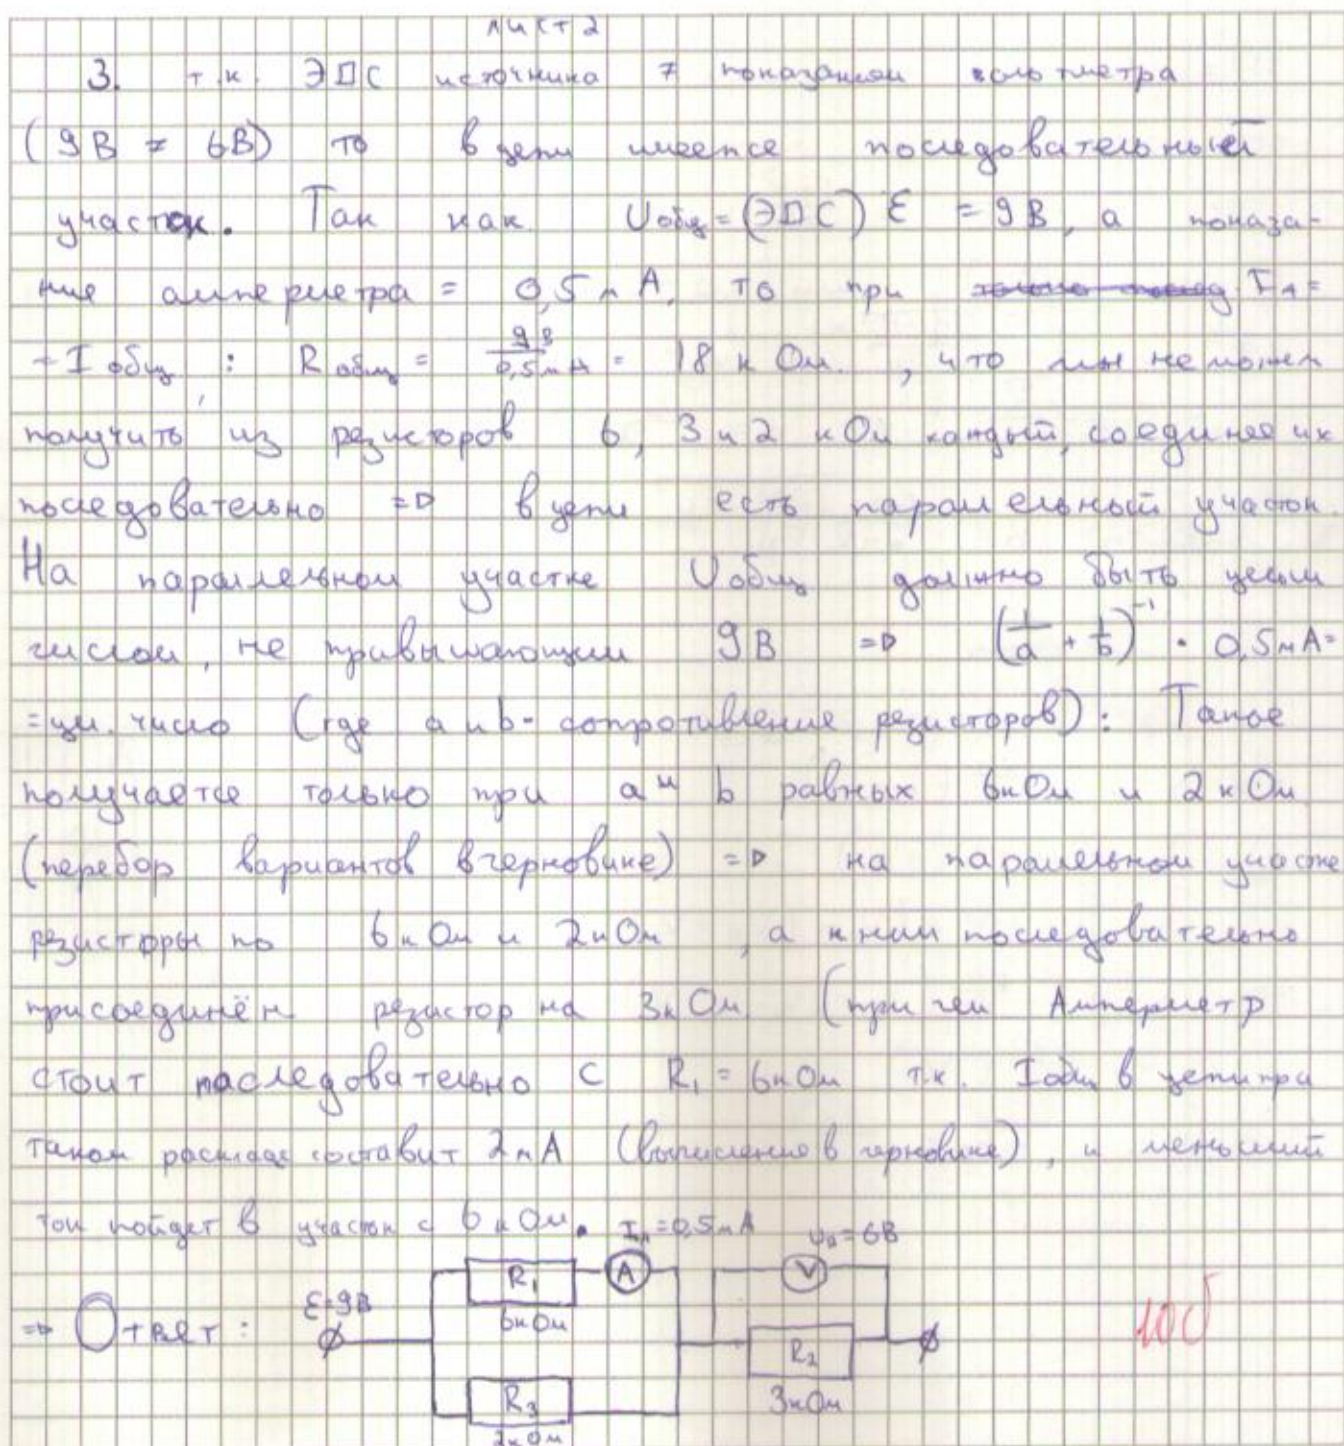 лист 2
3. т.к. ЭДС источника ≠ показаниям вольтметра
(9В ≠ 6В) то в цепи имеется последовательный
участок. Так как Uобщ = (ЭДС) ℰ = 9В, а показа-
ние амперметра = 0,5мА, то при IА=
= Iобщ : Rобщ = 9В/0,5мА = 18 кОм. , что мы не можем
получить из резисторов 6, 3 и 2 кОм каждый, соединяя их
последовательно => в цепи есть параллельный участок
На параллельном участке Uобщ должно быть целым
числом, не привышающим 9В => (1/a + 1/b)⁻¹ · 0,5мА=
=цел. число (где a и b - сопротивление резисторов): Такое
получается только при a и b равных 6кОм и 2кОм
(перебор вариантов в черновике) => на параллельном участке
резисторы по 6кОм и 2кОм, а к ним последовательно
присоединён резистор на 3кОм (при чём Амперметр
стоит последовательно с R₁ = 6кОм т.к. Iобщ в цепи при
таком раскладе составит 2мА (вычисление в черновике), и меньший
ток пойдет в участок с 6кОм.
IА=0,5мА Uв=6В
R₁ A V
ℰ=9В 6кОм
=> Ответ: 10б
R₂
R₃ 3кОм
2кОм